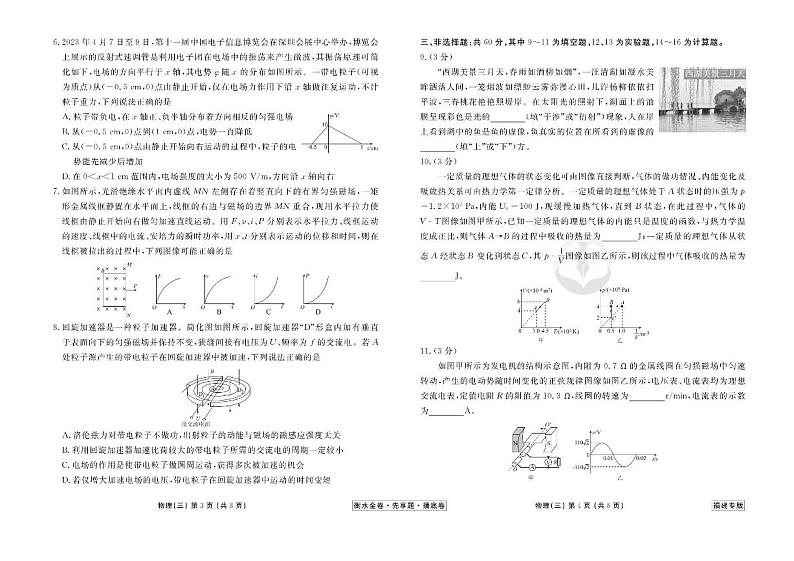 6. 2023年4月7日至9日,第十一届中国电子信息博览会在深圳会展中心举办,博览会
上展示的反射式速调管是利用电子团在电场中的振荡来产生微波,其振荡原理可简
化如下,电场的方向平行于x轴,其电势φ随x的分布如图所示。一带电粒子(可视
为质点)从(-0.5 cm,0)点由静止开始,仅在电场力作用下沿x轴做往复运动,不计
粒子重力,下列说法正确的是
A. 粒子带负电,在x轴正、负半轴分布着方向相反的匀强电场
B. 从(-0.5 cm,0)点到(1 cm,0)点,电势一直降低
C. 从(-0.5 cm,0)点由静止开始向右运动的过程中,粒子的电
势能先减少后增加
D. 在0<x<1 cm范围内,电场强度的大小为500 V/m,方向沿x轴向右
-0.5 0 1 x/cm
7. 如图所示,光滑绝缘水平面内虚线MN左侧存在着竖直向下的有界匀强磁场,一矩
形金属线框静置在水平面上,线框的右边与磁场的边界MN重合,现用水平拉力使
线框由静止开始向右做匀加速直线运动。用F、v、i、P分别表示水平拉力、线框运动
的速度、线框中的电流、安培力的瞬时功率,用x、t分别表示运动的位移和时间,则在
线框被拉出的过程中,下列图像可能正确的是
M
F
N
A B C D
8. 回旋加速器是一种粒子加速器。简化图如图所示,回旋加速器“D”形盒内加有垂直
于表面向下的匀强磁场并保持不变,狭缝间接有电压为U、频率为f的交流电。若A
处粒子源产生的带电粒子在回旋加速器中被加速,下列说法正确的是
B
U
接交流电源
A. 洛伦兹力对带电粒子不做功,出射粒子的动能与磁场的磁感应强度无关
B. 利用回旋加速器加速比荷较大的带电粒子所需的交流电的周期一定较小
C. 电场的作用是使带电粒子做圆周运动,获得多次被加速的机会
D. 若仅增大加速电场的电压,带电粒子在回旋加速器中运动的时间变短
物理(三) 第3页(共8页)
衡水金卷·先享题·摸底卷
三、非选择题:共60分,其中9~11为填空题,12、13为实验题,14~16为计算题。
9. (3分)
“西湖美景三月天,春雨如酒柳如烟”,一汪清湖如凝水美
眸洒落人间,一笼烟波如缥缈云雾弥漫心田,几许杨柳依依扫
平波,三春桃花艳艳照堤岸。在太阳光的照射下,湖面上的油
膜呈现彩色是光的______(填“干涉”或“衍射”)现象,人在岸
上看到湖中的鱼是鱼的虚像,鱼真实的位置在所看到的虚像的
______(填“上”或“下”)方。
西湖美景三月天
10. (3分)
一定质量的理想气体的状态变化可由图像直接判断,气体的做功情况、内能变化及
吸放热关系可由热力学第一定律分析。一定质量的理想气体处于A状态时的压强为p
=1.2×10⁵ Pa,内能U₀=100 J,现缓慢加热气体,直到B状态,在此过程中,气体的
V-T图像如图甲所示,已知一定质量的理想气体的内能只是温度的函数,与热力学温
度成正比,则气体A→B的过程中吸收的热量为______J;一定质量的理想气体从状
态A经状态B变化到状态C,其p-1/V图像如图乙所示,则该过程中气体吸收的热量为
______J。
V/(×10⁻³ m³)
6
4
0 3.0 4.5 T/(×10² K)
甲
p/(×10⁵ Pa)
4
2
0 0.5 1.0
乙
11. (3分)
如图甲所示为发电机的结构示意图,内阻为0.7 Ω的金属线圈在匀强磁场中匀速
转动,产生的电动势随时间变化的正弦规律图像如图乙所示,电压表、电流表均为理想
交流电表,定值电阻R的阻值为10.3 Ω,线圈的转速为______r/min,电流表的示数
为______A。
N S
甲
e/V
110√2
0 0.01 0.02 t/s
-110√2
乙
物理(三) 第4页(共8页)
福建专版